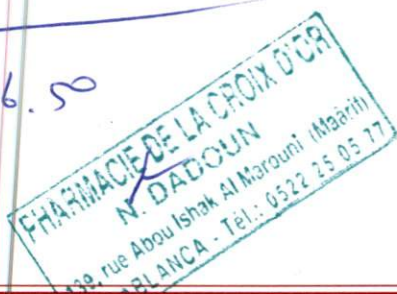 6.50
PHARMACIE DE LA CROIX D'OR
N. DADOUN
139, rue Abou Ishak Al Marouni (Maârif)
ABLANCA - Tél.: 0522 25 05 77